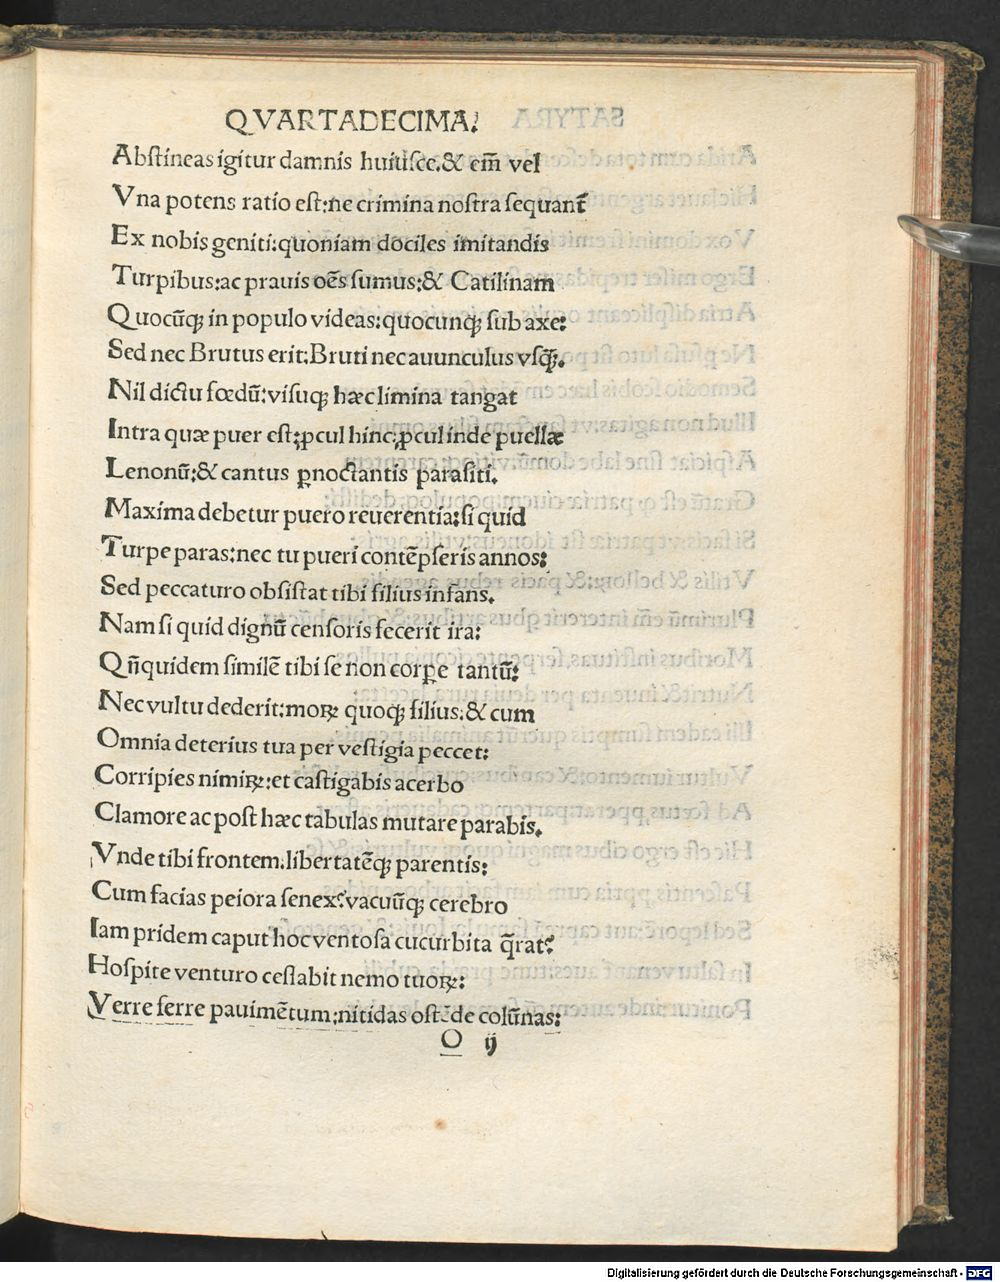 QVARTADECIMA.
Abſtineas igitur damnis huiuſce.& em̄ vel
Vna potens ratio eſt:ne crimina noſtra ſequant᷑
Ex nobis geniti:quoniam dociles imitandis
Turpibus:ac prauis oēs ſumus:& Catilinam
Quocūqꝫ in populo videas:quocunqꝫ ſub axe:
Sed nec Brutus erit:Bruti nec auunculus vſqꝫ.
Nil dictu fœdū:viſuqꝫ hæc limina tangat
Intra quæ puer eſt:ꝓcul hinc:ꝓcul inde puellæ
Lenonū:& cantus ꝑnoctantis paraſiti.
Maxima debetur puero reuerentia:ſi quid
Turpe paras:nec tu pueri contēpſeris annos:
Sed peccaturo obſiſtat tibi filius infans.
Nam ſi quid dignū cenſoris fecerit ira:
Qn̄quidem ſimilē tibi ſe non corꝑe tantū:
Nec vultu dederit:moꝝ quoqꝫ filius:& cum
Omnia deterius tua per veſtigia peccet:
Corripies nimiꝝ:et caſtigabis acerbo
Clamore ac poſt hæc tabulas mutare parabis.
Vnde tibi frontem.libertatēqꝫ parentis:
Cum facias peiora ſenex?vacuūqꝫ cerebro
Iam pridem caput hoc ventoſa cucurbita q̄rat?
Hoſpite venturo ceſſabit nemo tuoꝝ:
Verre ferre pauimētum:nitidas oſtēde colūnas:
O ij
Digitalisierung gefördert durch die Deutsche Forschungsgemeinschaft - DFG